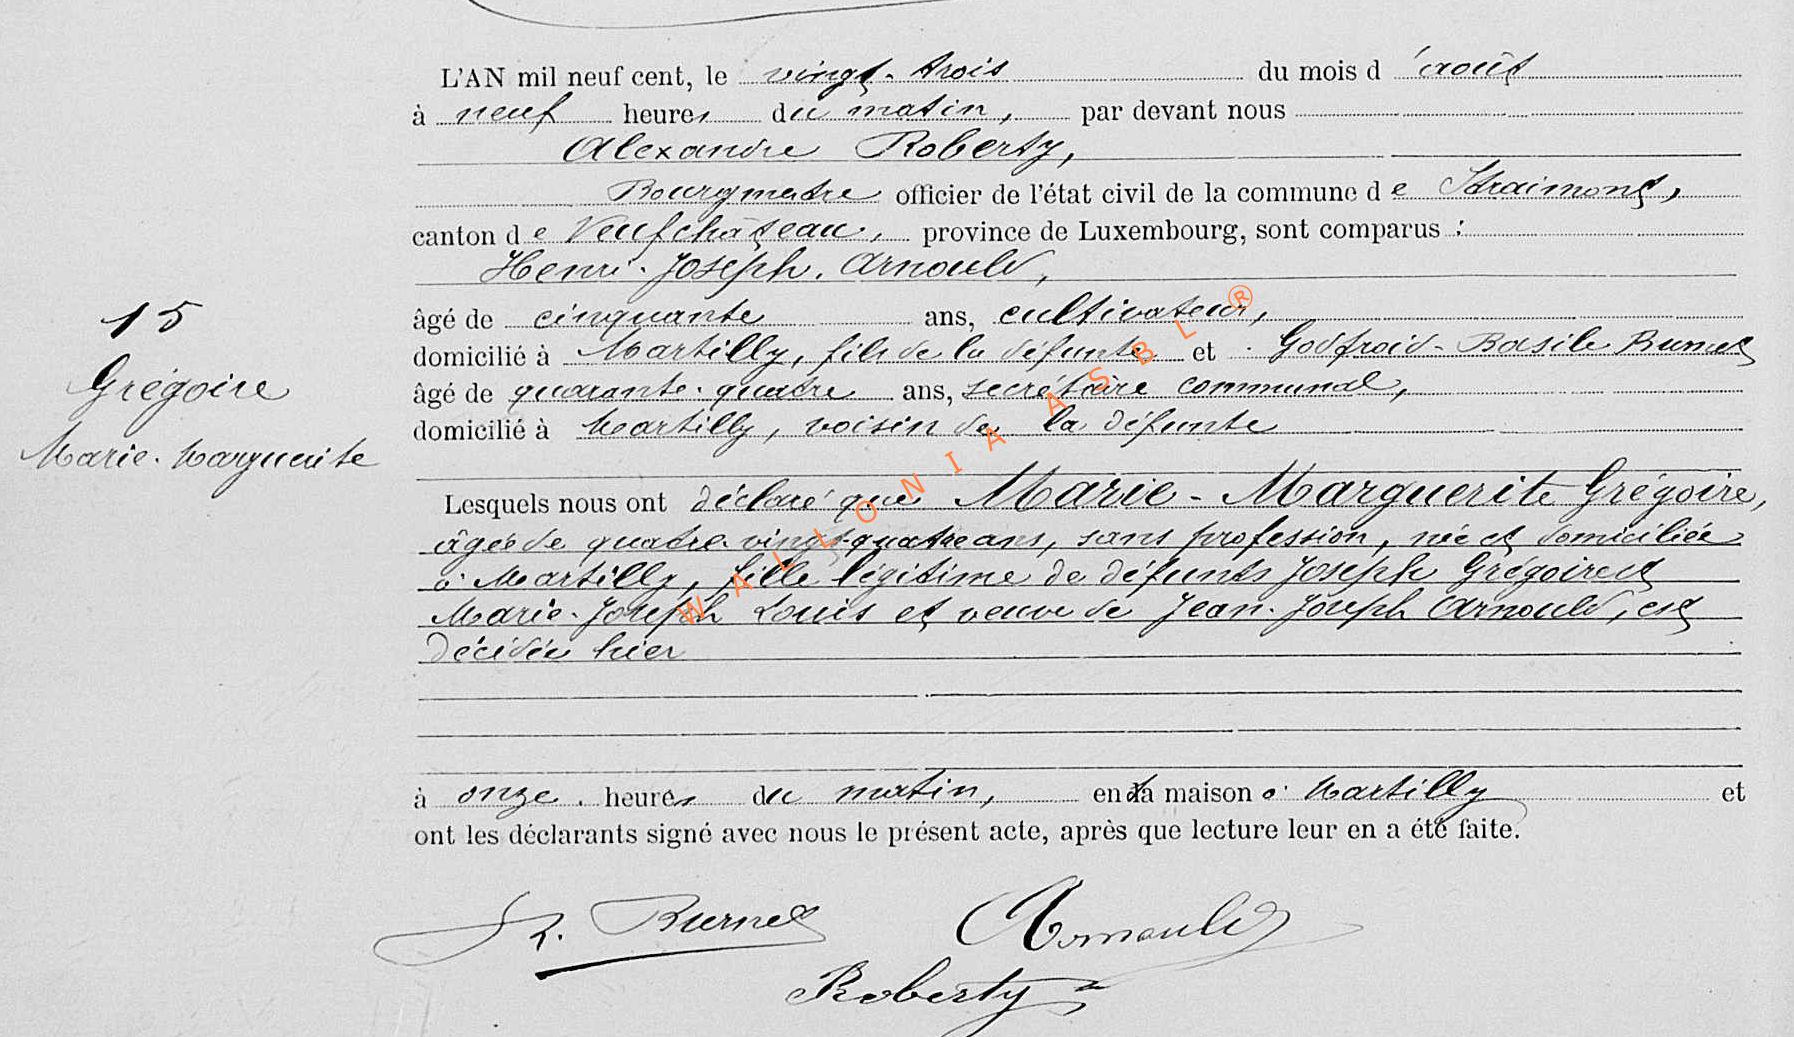 L'AN mil neuf cent, le vingt-trois du mois d'août
à neuf heures du matin, par devant nous
Alexandre Roberty,
Bourgmestre officier de l'état civil de la commune de Straimont,
canton de Neufchâteau, province de Luxembourg, sont comparus :
Henri-Joseph Arnould,
âgé de cinquante ans, cultivateur,
domicilié à Martilly, fils de la défunte et Godfroid-Basile Burnet
âgé de quarante-quatre ans, secrétaire communal,
domicilié à Martilly, voisin de la défunte
15
Grégoire
Marie-Marguerite
Lesquels nous ont déclaré que Marie-Marguerite Grégoire,
âgée de quatre-vingt-quatre ans, sans profession, née et domiciliée
à Martilly, fille légitime de défunts Joseph Grégoire et
Marie-Joseph Louis et veuve de Jean-Joseph Arnould, est
décédée hier
à onze heures du matin, en sa maison à Martilly et
ont les déclarants signé avec nous le présent acte, après que lecture leur en a été faite.
Burnet Arnould
Roberty
WALLONIA ASBL ®